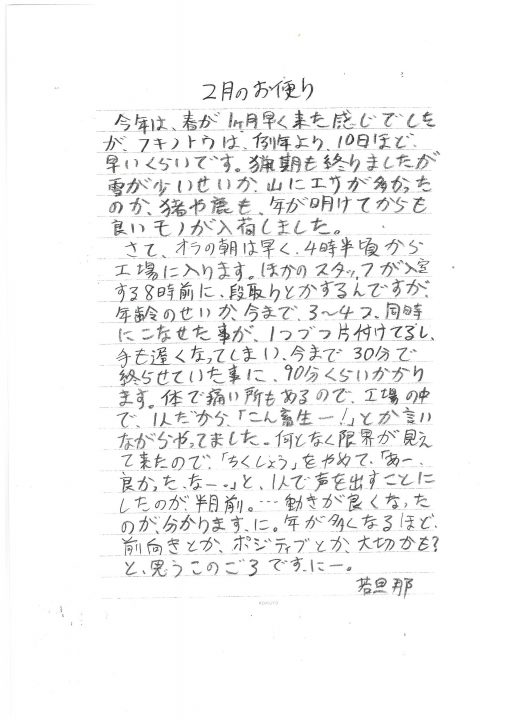 2月のお便り
今年は、春が1ヶ月早く来た感じでした
が、フキノトウは、例年より、10日ほど、
早いくらいです。猟期も終りましたが
雪が少いせいか、山にエサが多かった
のか、猪や鹿も、年が明けてからも
良いモノが入荷しました。
さて、オラの朝は早く、4時半頃から
工場に入ります。ほかのスタッフが入室
する8時前に、段取りとかするんですが、
年齢のせいか、今まで、3〜4つ、同時
にこなせた事が、1つづつ片付けてるし、
手も遅くなってしまい、今まで30分で
終らせていた事に、90分くらいかかり
ます。体で痛い所もあるので、工場の中
で、1人だから、「こん畜生ー!」とか言い
ながらやってました。何となく限界が見え
て来たので、「ちくしょう」をやめて、「あー、
良かった、なー。」と、1人で声を出すことに
したのが、半月前。…動きが良くなった
のが、分かります、に。年が多くなるほど、
前向きとか、ポジティブとか、大切かも?
と、思うこのごろです、にー。
若旦那
KOKUYO